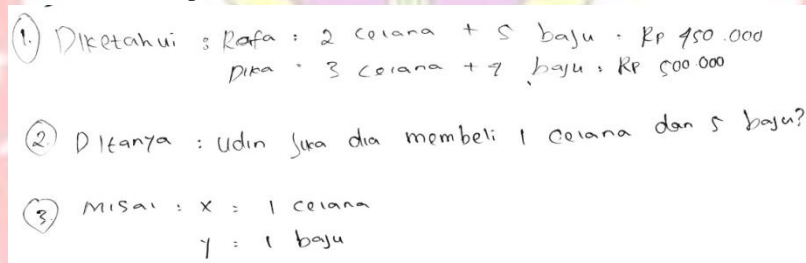 1. Diketahui : Rafa : 2 celana + 5 baju : Rp 450.000
Dika : 3 celana + 4 baju : Rp 500.000
2. Ditanya : Udin jika dia membeli 1 celana dan 5 baju?
3. Misal : x = 1 celana
y = 1 baju